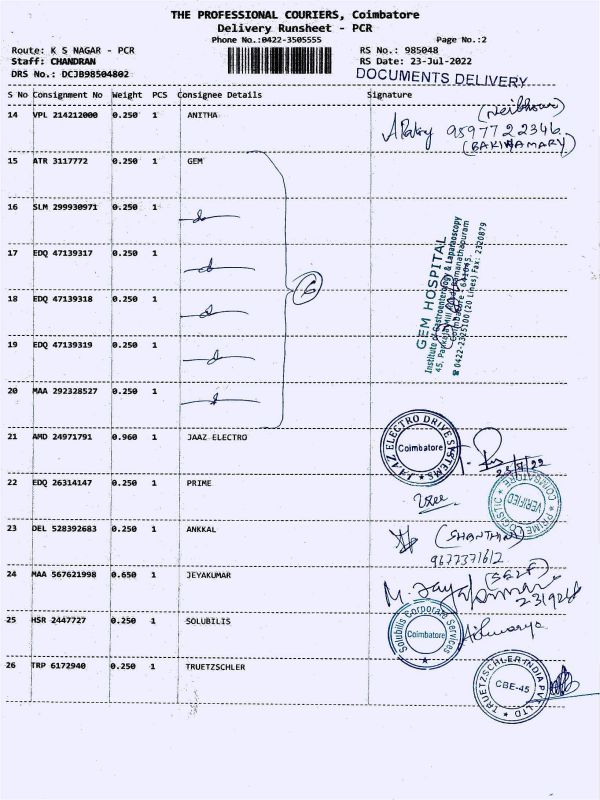 THE PROFESSIONAL COURIERS, Coimbatore
Delivery Runsheet - PCR
Phone No.:0422-3505555 Page No.:2
Route: K S NAGAR - PCR RS No.: 985048
Staff: CHANDRAN RS Date: 23-Jul-2022
DRS No.: DCJB98504802 DOCUMENTS DELIVERY
S No Consignment No Weight PCS Consignee Details Signature
14 VPL 214212000 0.250 1 ANITHA
9597722346
15 ATR 3117772 0.250 1 GEM
16 SLM 299930971 0.250 1
17 EDQ 47139317 0.250 1
18 EDQ 47139318 0.250 1
19 EDQ 47139319 0.250 1
20 MAA 292328527 0.250 1
6
GEM HOSPITAL
Institute of Gastroenterology & Laparoscopy
45, Pankaja Mill Road, Ramanathapuram
Coimbatore - 641045.
☎ 0422-2325100 (20 Lines) Fax: 2320879
21 AMD 24971791 0.960 1 JAAZ ELECTRO
JAAZ ELECTRO DRIVE SYSTEMS
Coimbatore
23/7/22
22 EDQ 26314147 0.250 1 PRIME
PRIME LOGISTIC
VERIFIED
COIMBATORE
23 DEL 528392683 0.250 1 ANKKAL
9677371612
24 MAA 567621998 0.650 1 JEYAKUMAR
(SELF)
25 HSR 2447727 0.250 1 SOLUBILIS
Solubilis Corporate Services
Coimbatore
26 TRP 6172940 0.250 1 TRUETZSCHLER
TRUETZSCHLER INDIA PVT LTD
CBE-45